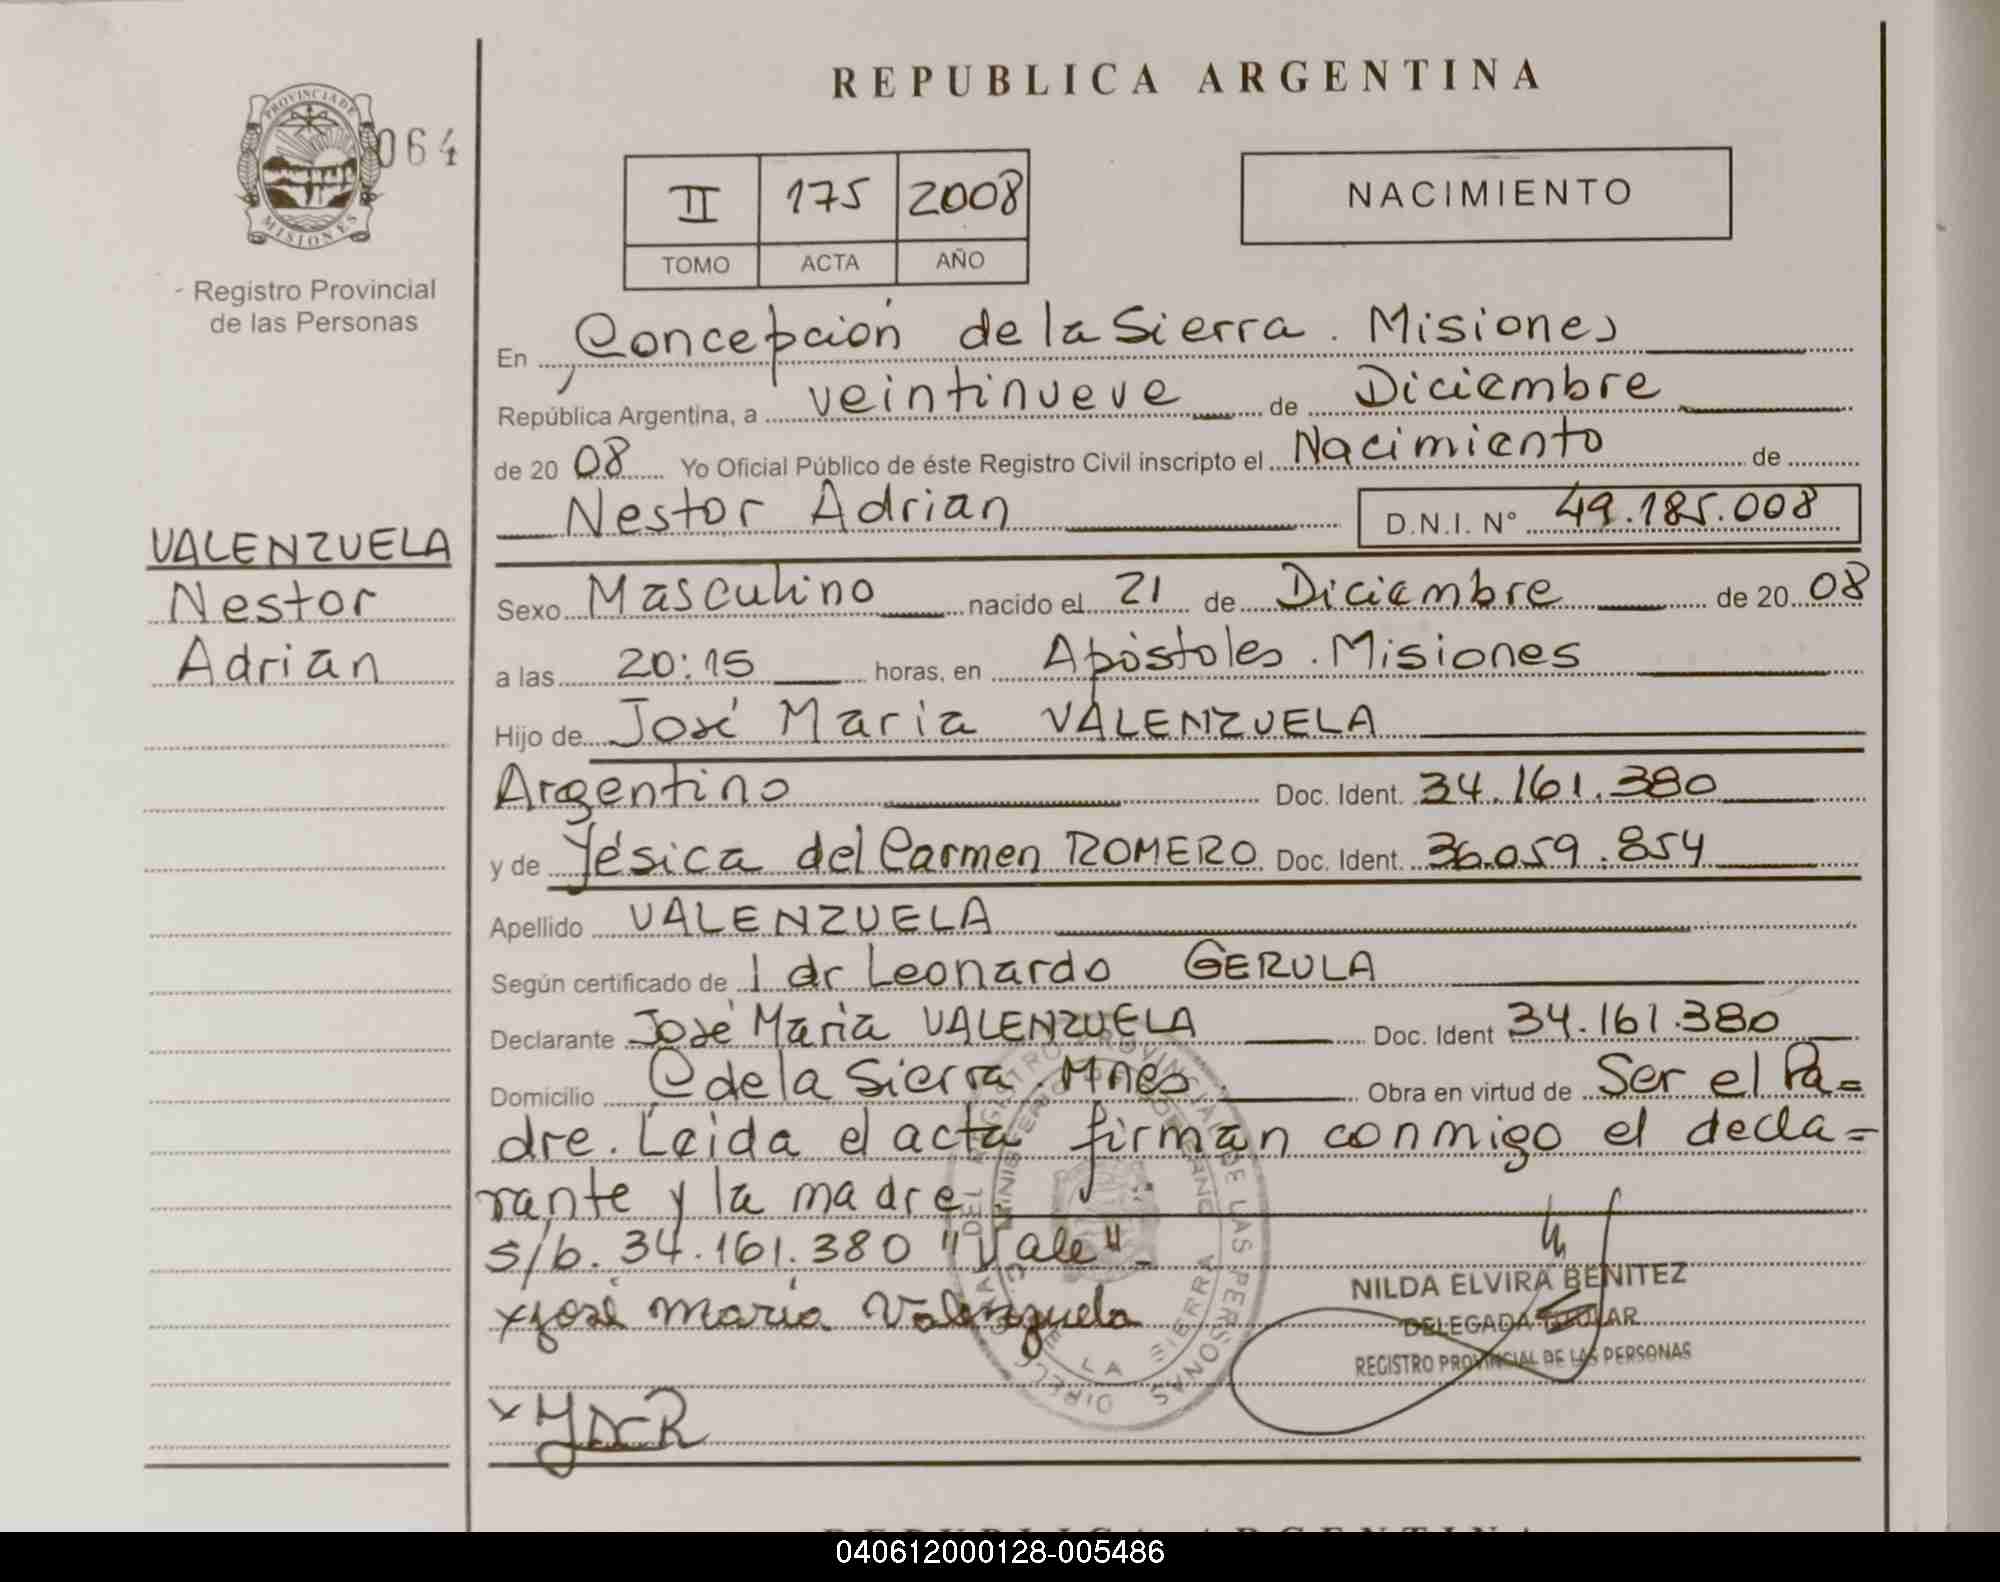 REPUBLICA ARGENTINA
PROVINCIA DE
MISIONES
064
II 175 2008
TOMO ACTA AÑO
NACIMIENTO
Registro Provincial
de las Personas
En Concepción de la Sierra. Misiones
República Argentina, a veintinueve de Diciembre
de 20 08 Yo Oficial Público de éste Registro Civil inscripto el Nacimiento de
Nestor Adrian D.N.I. N° 49.185.008
VALENZUELA
Nestor
Adrian
Sexo Masculino nacido el 21 de Diciembre de 20 08
a las 20:15 horas, en Apóstoles. Misiones
Hijo de José Maria VALENZUELA
Argentino Doc. Ident. 34.161.380
y de Yésica del Carmen ROMERO Doc. Ident. 36.059.854
Apellido VALENZUELA
Según certificado de l dr Leonardo GERULA
Declarante José Maria VALENZUELA Doc. Ident 34.161.380
Domicilio C de la Sierra. Mnes Obra en virtud de Ser el Pa=
dre. Leida el acta firman conmigo el decla=
rante y la madre
s/b. 34.161.380 "Vale"
x José maria Valenzuela
x YDCR
NILDA ELVIRA BENITEZ
DELEGADA TITULAR
REGISTRO PROVINCIAL DE LAS PERSONAS
REGISTRO PROVINCIAL DE LAS PERSONAS
MINISTERIO DE GOBIERNO
DE LA SIERRA
040612000128-005486